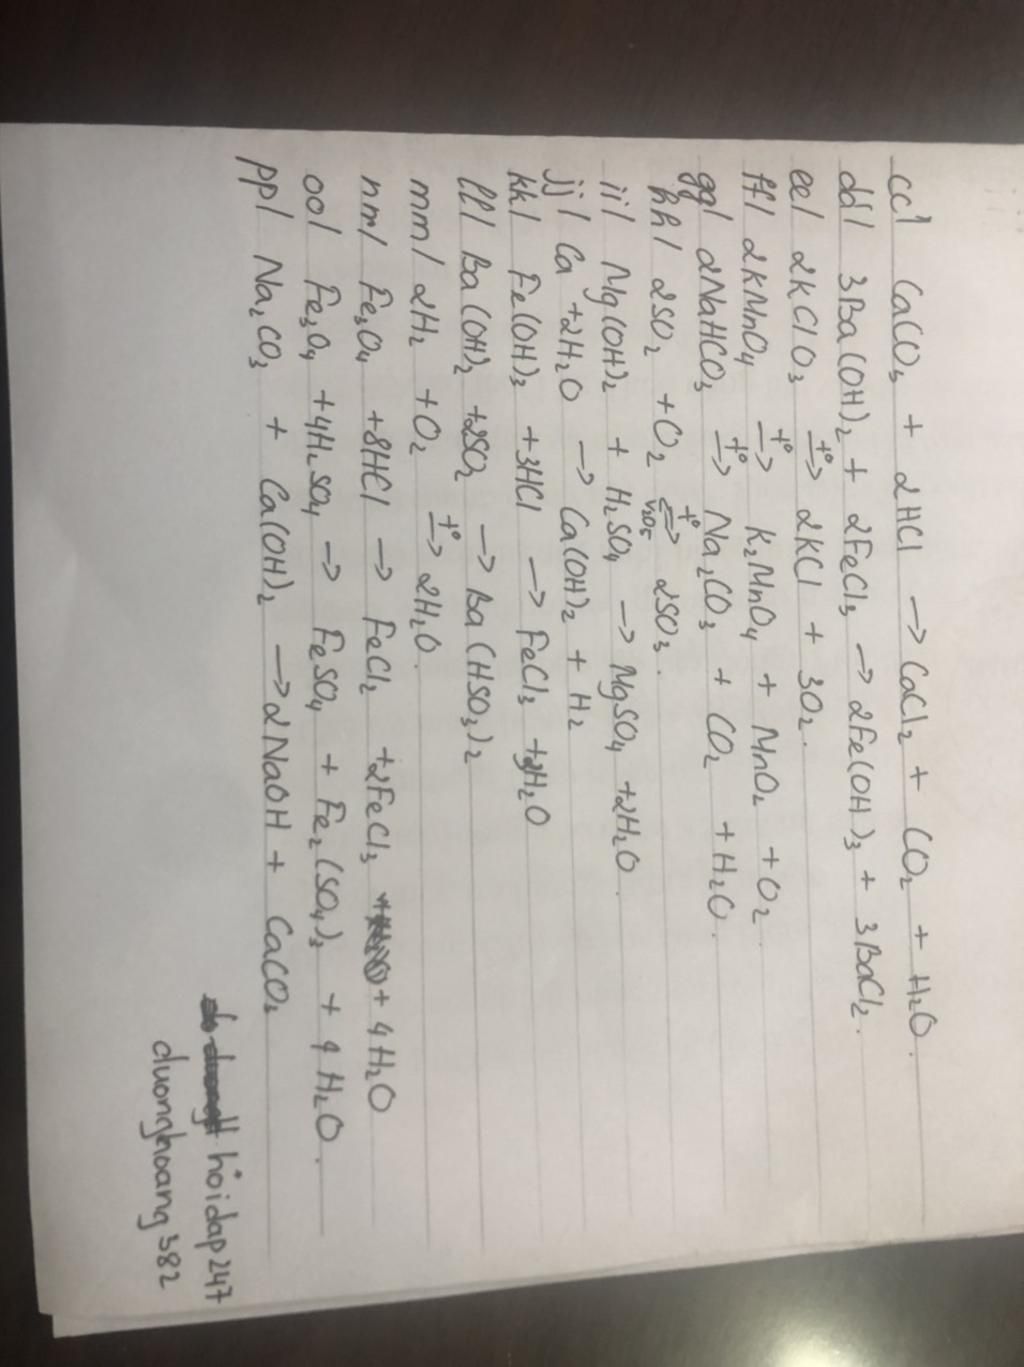 cc/ CaCO₃ + 2HCl → CaCl₂ + CO₂ + H₂O.
dd/ 3Ba(OH)₂ + 2FeCl₃ → 2Fe(OH)₃ + 3BaCl₂.
ee/ 2KClO₃ →t° 2KCl + 3O₂.
ff/ 2KMnO₄ →t° K₂MnO₄ + MnO₂ + O₂.
gg/ 2NaHCO₃ →t° Na₂CO₃ + CO₂ + H₂O.
hh/ 2SO₂ + O₂ ⇌t° V₂O₅ 2SO₃.
ii/ Mg(OH)₂ + H₂SO₄ → MgSO₄ + 2H₂O.
jj/ Ca + 2H₂O → Ca(OH)₂ + H₂
kk/ Fe(OH)₃ + 3HCl → FeCl₃ + 3H₂O
ll/ Ba(OH)₂ + 2SO₂ → Ba(HSO₃)₂
mm/ 2H₂ + O₂ →t° 2H₂O.
nm/ Fe₃O₄ + 8HCl → FeCl₂ + 2FeCl₃ + 4H₂O
oo/ Fe₃O₄ + 4H₂SO₄ → FeSO₄ + Fe₂(SO₄)₃ + 4H₂O.
pp/ Na₂CO₃ + Ca(OH)₂ → 2NaOH + CaCO₃
hoidap247
duonghoang382